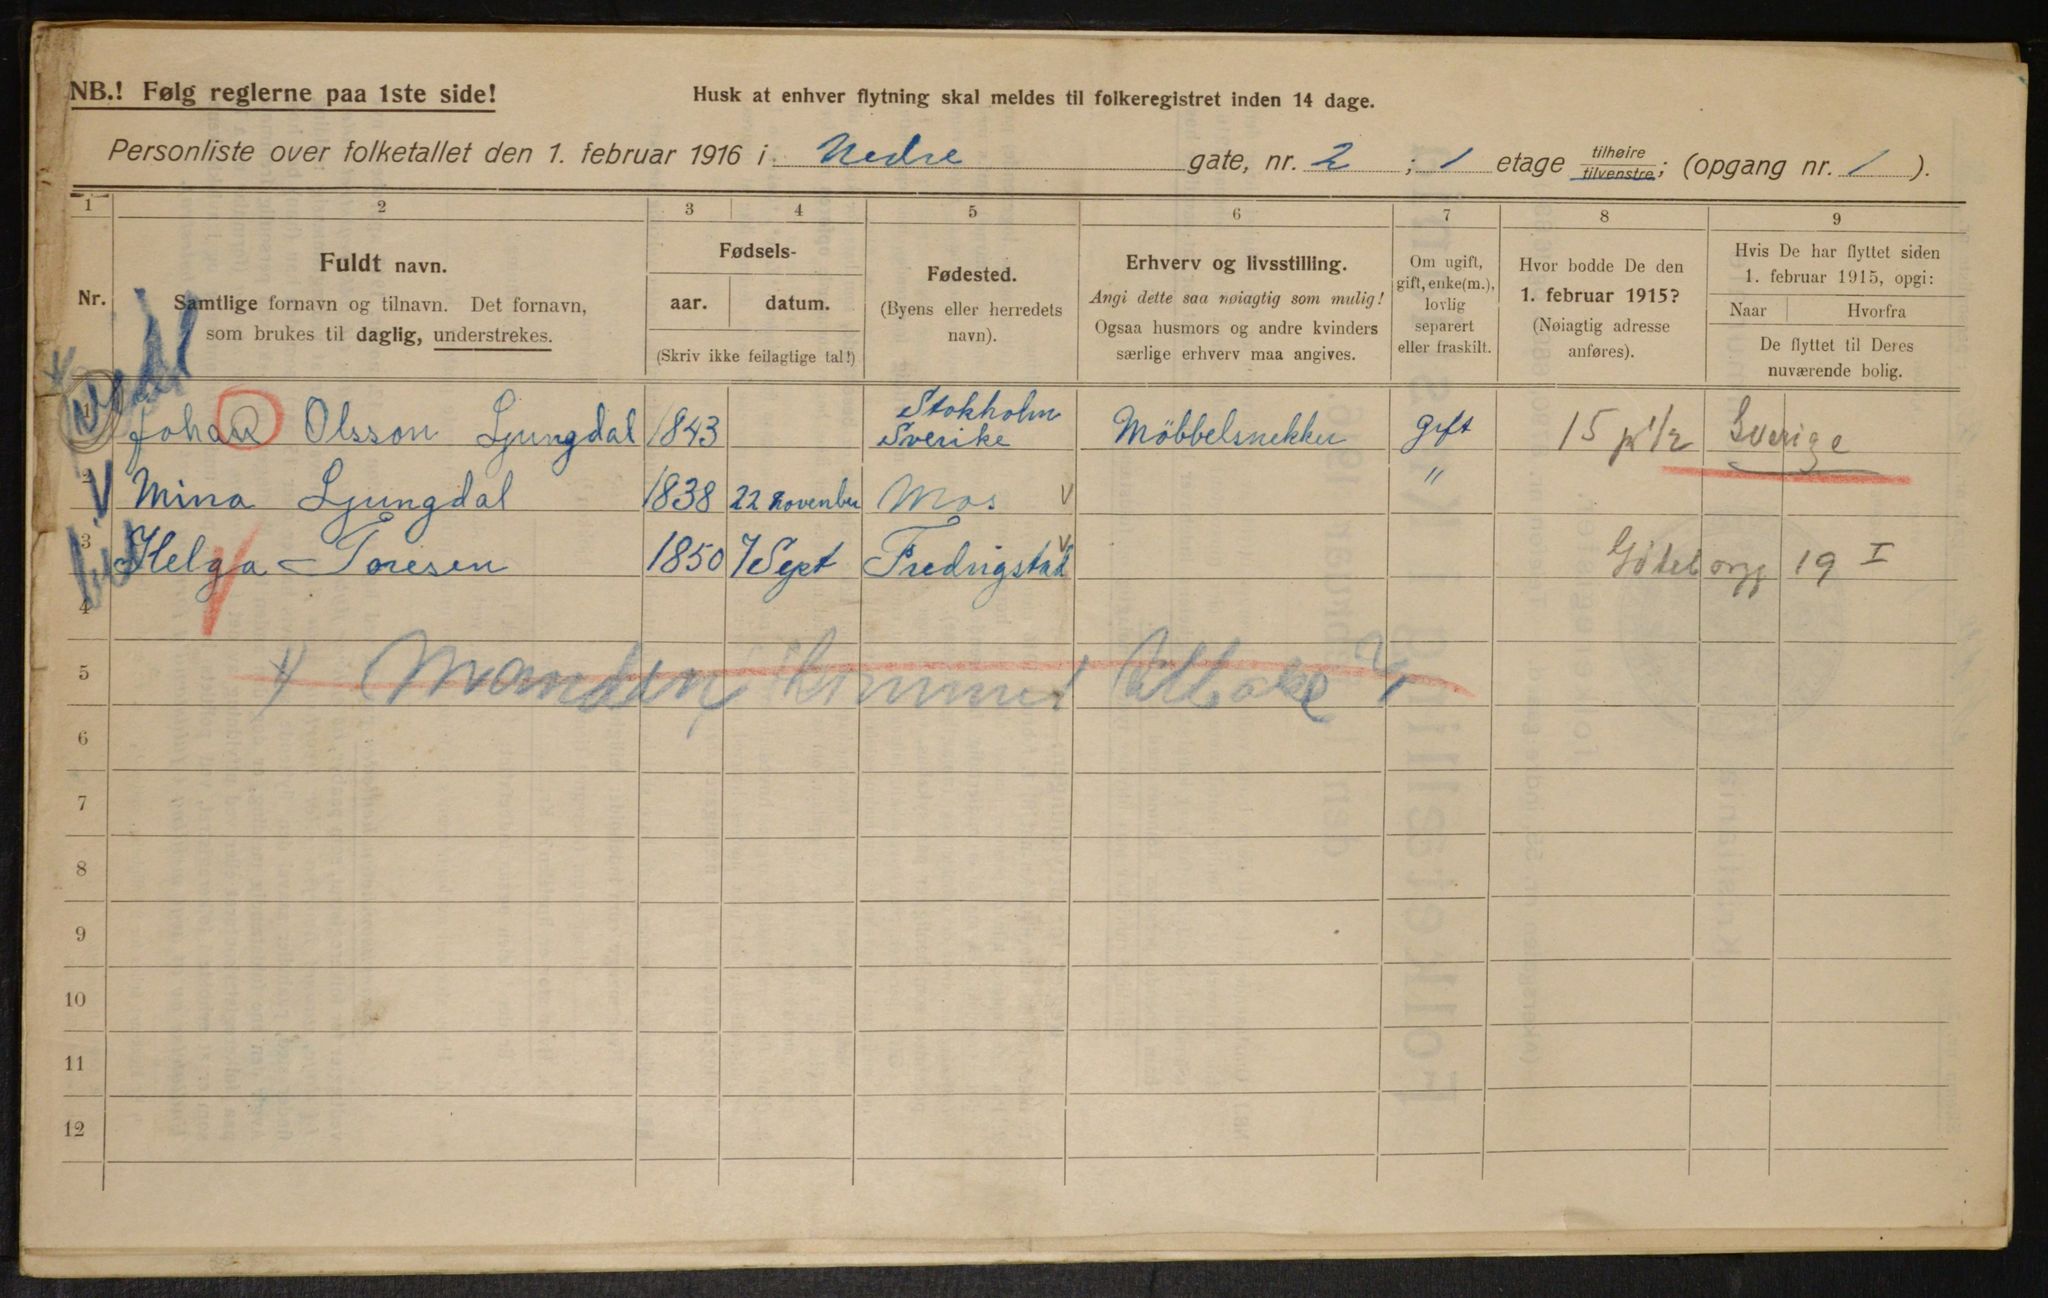 NB.! Følg reglerne paa 1ste side!
Husk at enhver flytning skal meldes til folkeregistret inden 14 dage.
Personliste over folketallet den 1. februar 1916 i Nedre gate, nr. 2 ; 1 etage tilhøire tilvenstre; (opgang nr. 1 ).
1 2 3 4 5 6 7 8 9
Nr.
Fuldt navn.
Samtlige fornavn og tilnavn. Det fornavn,
som brukes til daglig, understrekes.
Fødsels-
aar. datum.
(Skriv ikke feilagtige tal!)
Fødested.
(Byens eller herredets
navn).
Erhverv og livsstilling.
Angi dette saa nøiagtig som mulig!
Ogsaa husmors og andre kvinders
særlige erhverv maa angives.
Om ugift,
gift, enke(m.),
lovlig
separert
eller fraskilt.
Hvor bodde De den
1. februar 1915?
(Nøiagtig adresse
anføres).
Hvis De har flyttet siden
1. februar 1915, opgi:
Naar Hvorfra
De flyttet til Deres
nuværende bolig.
1 Johan Olsson Ljungdal 1843 Stokholm Sverike Möbbelsnekker gift 15 1/2 Sverige
2 Mina Ljungdal 1838 22 november Mos "
3 Helga Toresen 1850 7 Sept Fredrigstad Göteborg 19 I
4
5 Manden kommet tilbake
6
7
8
9
10
11
12